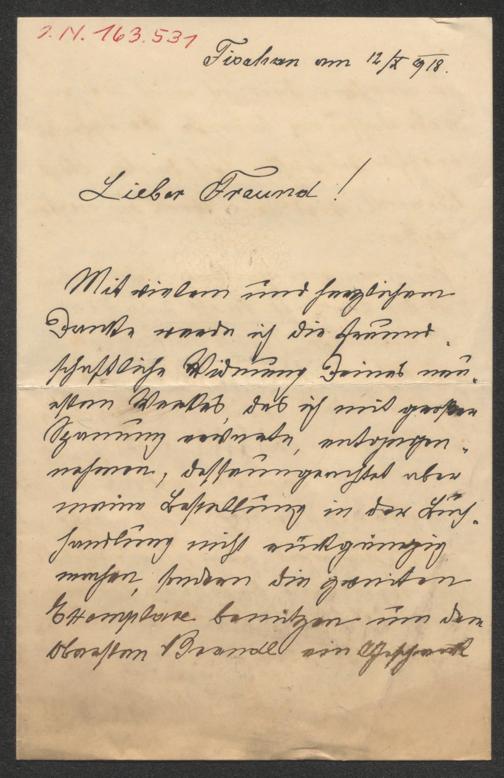 J. N. 163.531
am 12/X 918.
Lieber Freund!
Mit vielem und herzlichem
Danke werde ich die freund-
schaftliche Widmung Deines neu-
esten Werkes, das ich mit großer
Spannung erwarte, entgegen-
nehmen, dessenungeachtet aber
meine Bestellung in der Buch-
handlung nicht rückgängig
machen, sondern die zweiten
Exemplare benützen um dem
Obersten Brandl ein Geschenk